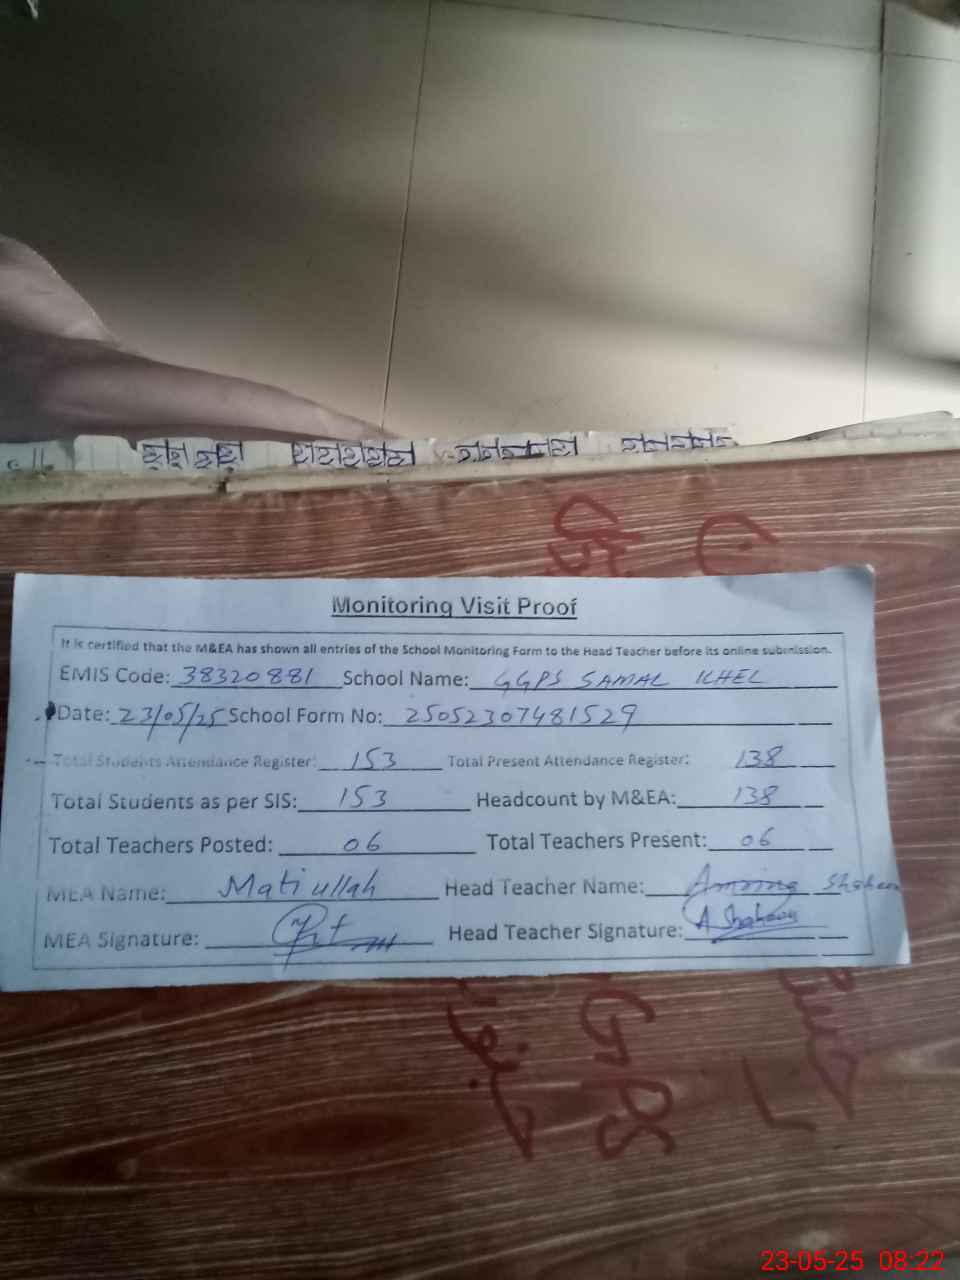 Monitoring Visit Proof
It is certified that the M&EA has shown all entries of the School Monitoring Form to the Head Teacher before its online submission.
EMIS Code: 38320881 School Name: GGPS SAMAL KHEL
Date: 23/05/25 School Form No: 25052307481529
Total Students Attendance Register: 153 Total Present Attendance Register: 138
Total Students as per SIS: 153 Headcount by M&EA: 138
Total Teachers Posted: 06 Total Teachers Present: 06
MEA Name: Matiullah Head Teacher Name: Shaheen
MEA Signature: Head Teacher Signature: A Shaheen
23-05-25 08:22